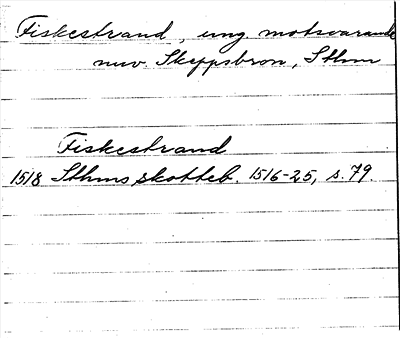 Fiskestrand, ung motsvarande
nuv. Skeppsbron, Sthm
Fiskestrand
1518 Sthms skotteb. 1516-25, s. 79.